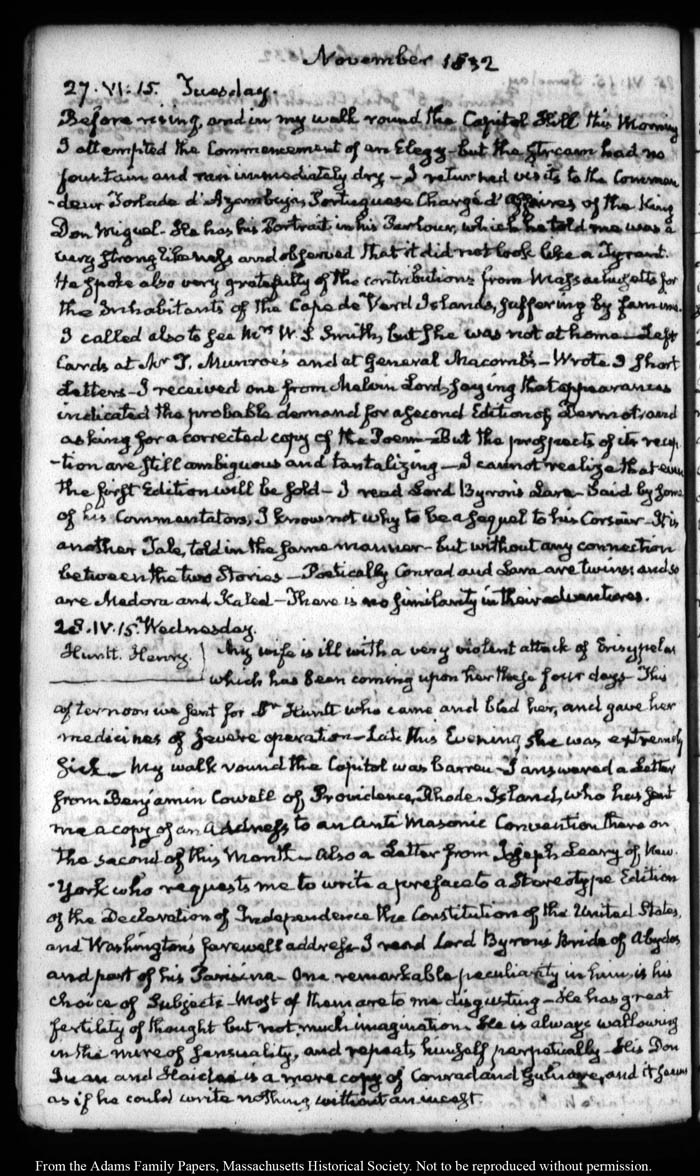 November 1832
27. VI:15. Tuesday.
Before rising, and in my walk round the Capitol Hill this Morning
I attempted the Commencement of an Elegy - but the stream had no
fountain and ran immediately dry - I returned visits to the Commen
-deur Torlade d'Azambuja, Portuguese Chargé d'Affaires of the King
Don Miguel - He has his Portrait in his Parlour, which he told me was a
very strong likeness and observed that it did not look like a Tyrant.
He spoke also very gratefully of the contributions from Massachusetts for
the Inhabitants of the Cape de Verd Islands, suffering by famine.
I called also to see Mrs W. S. Smith, but she was not at home - Left
Cards at Mr T. Munroe's and at General Macomb's - Wrote 3 short
Letters - I received one from Melvin Lord, saying that appearances
indicated the probable demand for a second Edition of Dermot, and
asking for a corrected copy of the Poem - But the prospects of its recep
-tion are still ambiguous and tantalizing - I cannot realize that even
the first Edition will be sold - I read Lord Byron's Lara - Said by some
of his Commentators, I know not why to be a sequel to his Corsair - It is
another Tale, told in the same manner - but without any connection
between the two Stories - Poetically Conrad and Lara are twins; and so
are Medora and Kaled - There is no similarity in their adventures.
28. IV.15. Wednesday.
Huntt. Henry. } My wife is ill with a very violent attack of Erisypelas
which has been coming upon her these four days - This
afternoon we sent for Dr Huntt who came and bled her, and gave her
medicines of severe operation - Late this Evening, she was extremely
sick - My walk round the Capitol was barren - I answered a Letter
from Benjamin Cowell of Providence, Rhode-Island, who has sent
me a copy of an Address to an Anti Masonic Convention there on
the second of this Month - Also a Letter from Joseph Leary of New
-York who requests me to write a preface to a Stereotype Edition
of the Declaration of Independence the Constitution of the United States,
and Washington's farewell address - I read Lord Byron's Bride of Abydos
and part of his Parisina - One remarkable peculiarity in him, is his
choice of Subjects - Most of them are to me disgusting - He has great
fertility of thought but not much imagination. He is always wallowing
in the mire of sensuality, and repeats himself perpetually - His Don
Juan and Haidee is a mere copy of Conrad and Gulnare, and it seems
as if he could write nothing without an incest.
From the Adams Family Papers, Massachusetts Historical Society. Not to be reproduced without permission.